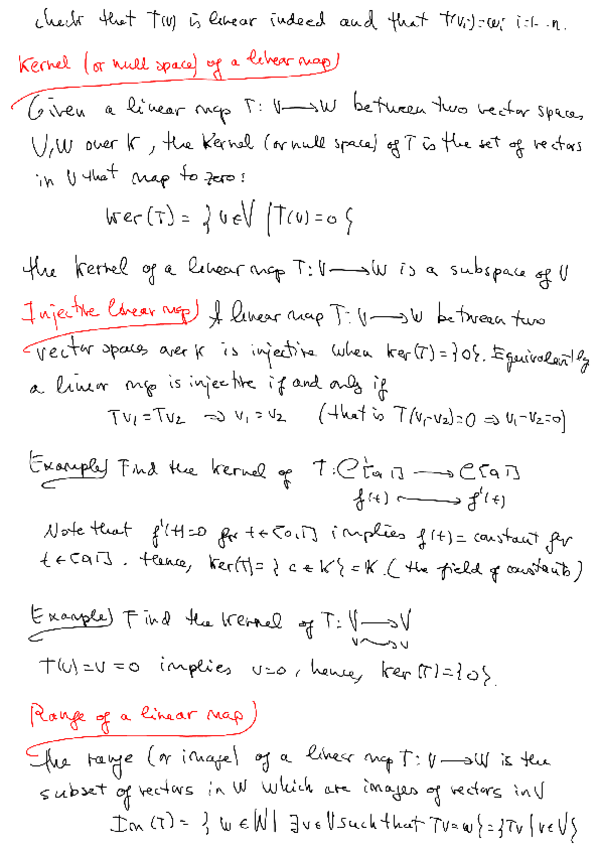 check that T(v) is linear indeed and that T(vi)=wi i=1..n.
Kernel (or null space) of a linear map)
Given a linear map T: V⟶W between two vector spaces
V,W over K, the Kernel (or null space) of T is the set of vectors
in V that map to zero:
Ker(T) = { v∈V | T(v)=0 }
the kernel of a linear map T: V⟶W is a subspace of V
Injective linear map) A linear map T: V⟶W between two
vector spaces over K is injective when Ker(T)={0}. Equivalently
a linear map is injective if and only if
Tv1=Tv2 ⇒ v1=v2 (that is T(v1-v2)=0 ⇒ v1-v2=0)
Example) Find the kernel of T: C¹[0,1] ⟶ C[0,1]
f(t) ⟶ f'(t)
Note that f'(t)=0 for t∈[0,1] implies f(t)= constant for
t∈[0,1]. Hence, Ker(T)= { c∈K } = K. (the field of constants)
Example) Find the kernel of T: V⟶V
v⟶v
T(v)=v=0 implies v=0, hence, Ker(T)={0}.
Range of a linear map)
the range (or image) of a linear map T: V⟶W is the
subset of vectors in W which are images of vectors in V
Im(T)= { w∈W | ∃v∈V such that Tv=w}={Tv | v∈V}